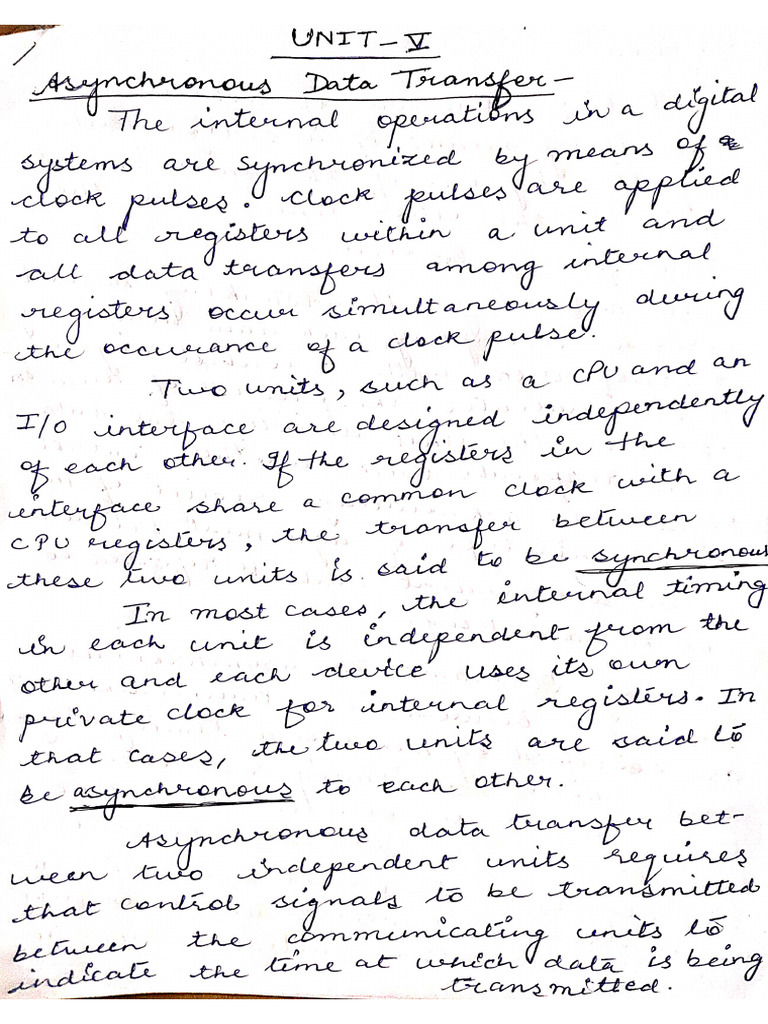 UNIT-V
Asynchronous Data Transfer-
The internal operations in a digital
systems are synchronized by means of a
clock pulses. Clock pulses are applied
to all registers within a unit and
all data transfers among internal
registers occur simultaneously during
the occurance of a clock pulse.
Two units, such as a CPU and an
I/O interface are designed independently
of each other. If the registers in the
interface share a common clock with a
CPU registers, the transfer between
these two units is said to be synchronous
In most cases, the internal timing
in each unit is independent from the
other and each device uses its own
private clock for internal registers. In
that cases, the two units are said to
be asynchronous to each other.
Asynchronous data transfer bet-
ween two independent units requires
that control signals to be transmitted
between the communicating units to
indicate the time at which data is being
transmitted.